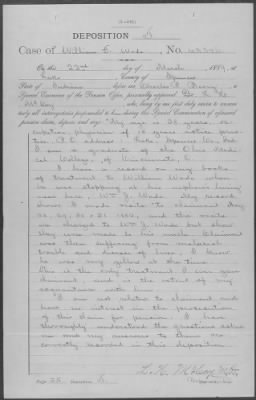 DEPOSITION
Case of William E. Wade, No.
On this 22d day of March 1889, at
county of Spencer
State of Indiana before me, Charles F.
Special Examiner of the Pension Office, personally appeared Dr. L. H.
McCoy, who, being by me first duly sworn to answer
truly all interrogatories propounded to him, during this Special Examination of aforesaid
pension claim, deposes and says: My age is 38 years, oc-
cupation, physician of 15 years active prac-
tice, P.O. address Spencer Co. Ind.
I am a graduate of the Ohio Med-
ical College, of Cincinnati, O.
I have a record on my books
of treatment to William Wade when
he was stopping at his nephew's living
near here, Wm J. Wade. My record
shows I made visits to claimant Aug
and the visits
was charged to Wm J. Wade but show
they were made to his uncle. Claimant
was then suffering from malarial
trouble and disease of liver. I know
he was a very yellow at the time.
This is the only treatment I ever gave
claimant, and is the extent of my
acquaintance with him.
I am not related to claimant and
have no interest in the prosecution
of this claim for pension. I have
thoroughly understood the questions asked
me and my answers to them are
correctly recorded in this deposition.
L. H. McCoy M.D.
Deponent.
Page 25